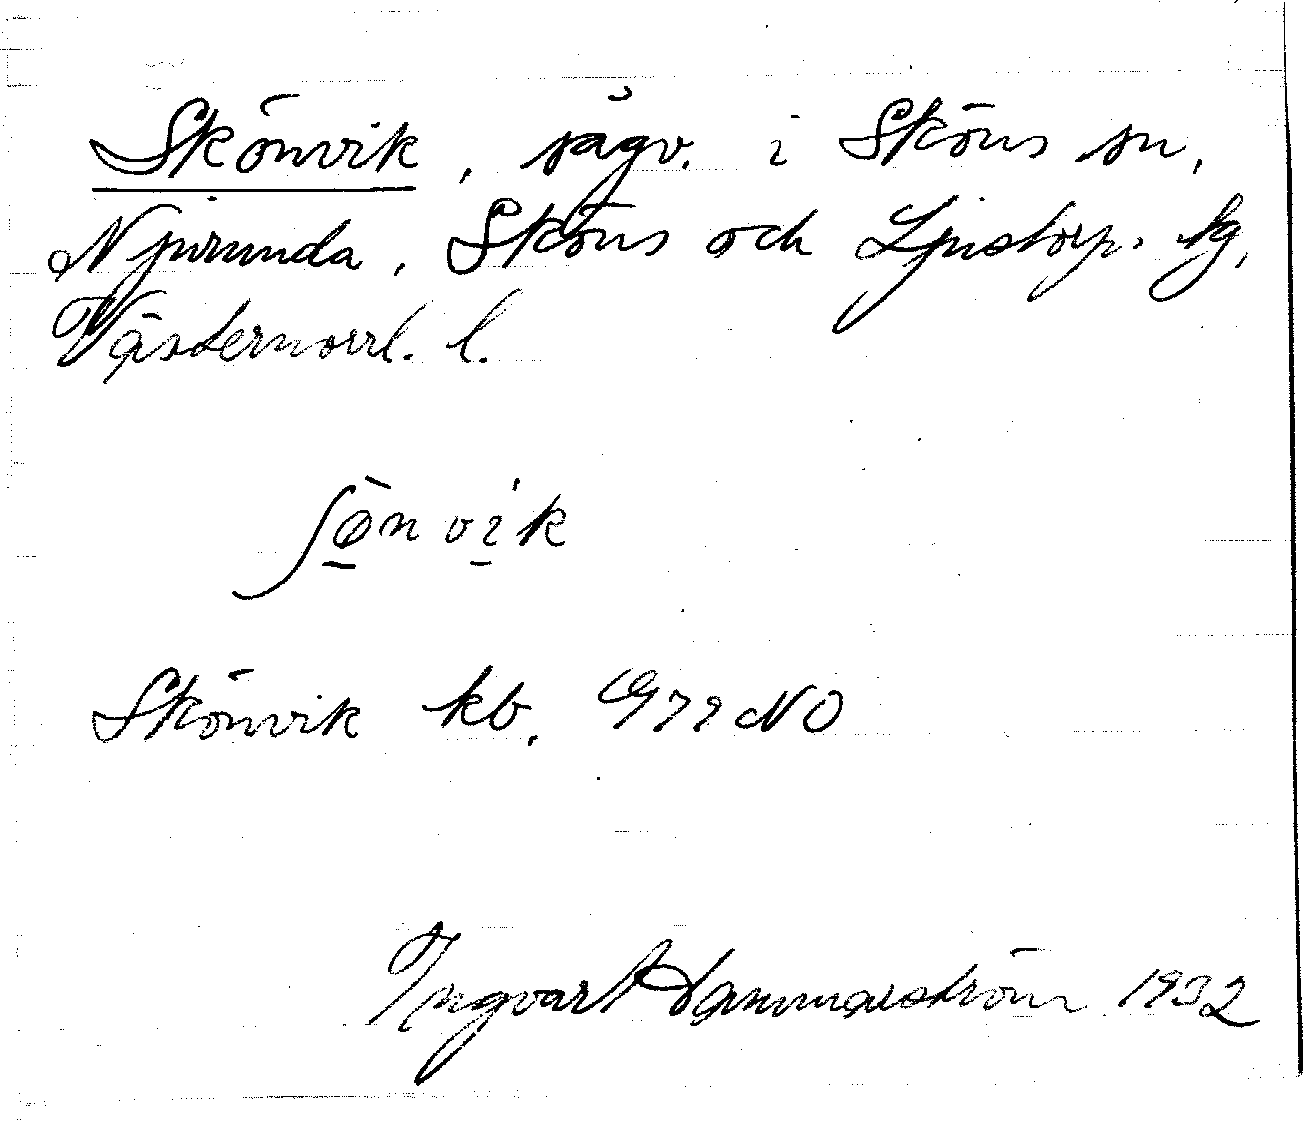 Skönvik, sågv. i Sköns sn,
Njurunda, Sköns och Ljustorps tg,
Västernorrl. l.
ʃø̠̀nví̠k
Skönvik kb. G 72 NO
Ingvar Hammarström 1932